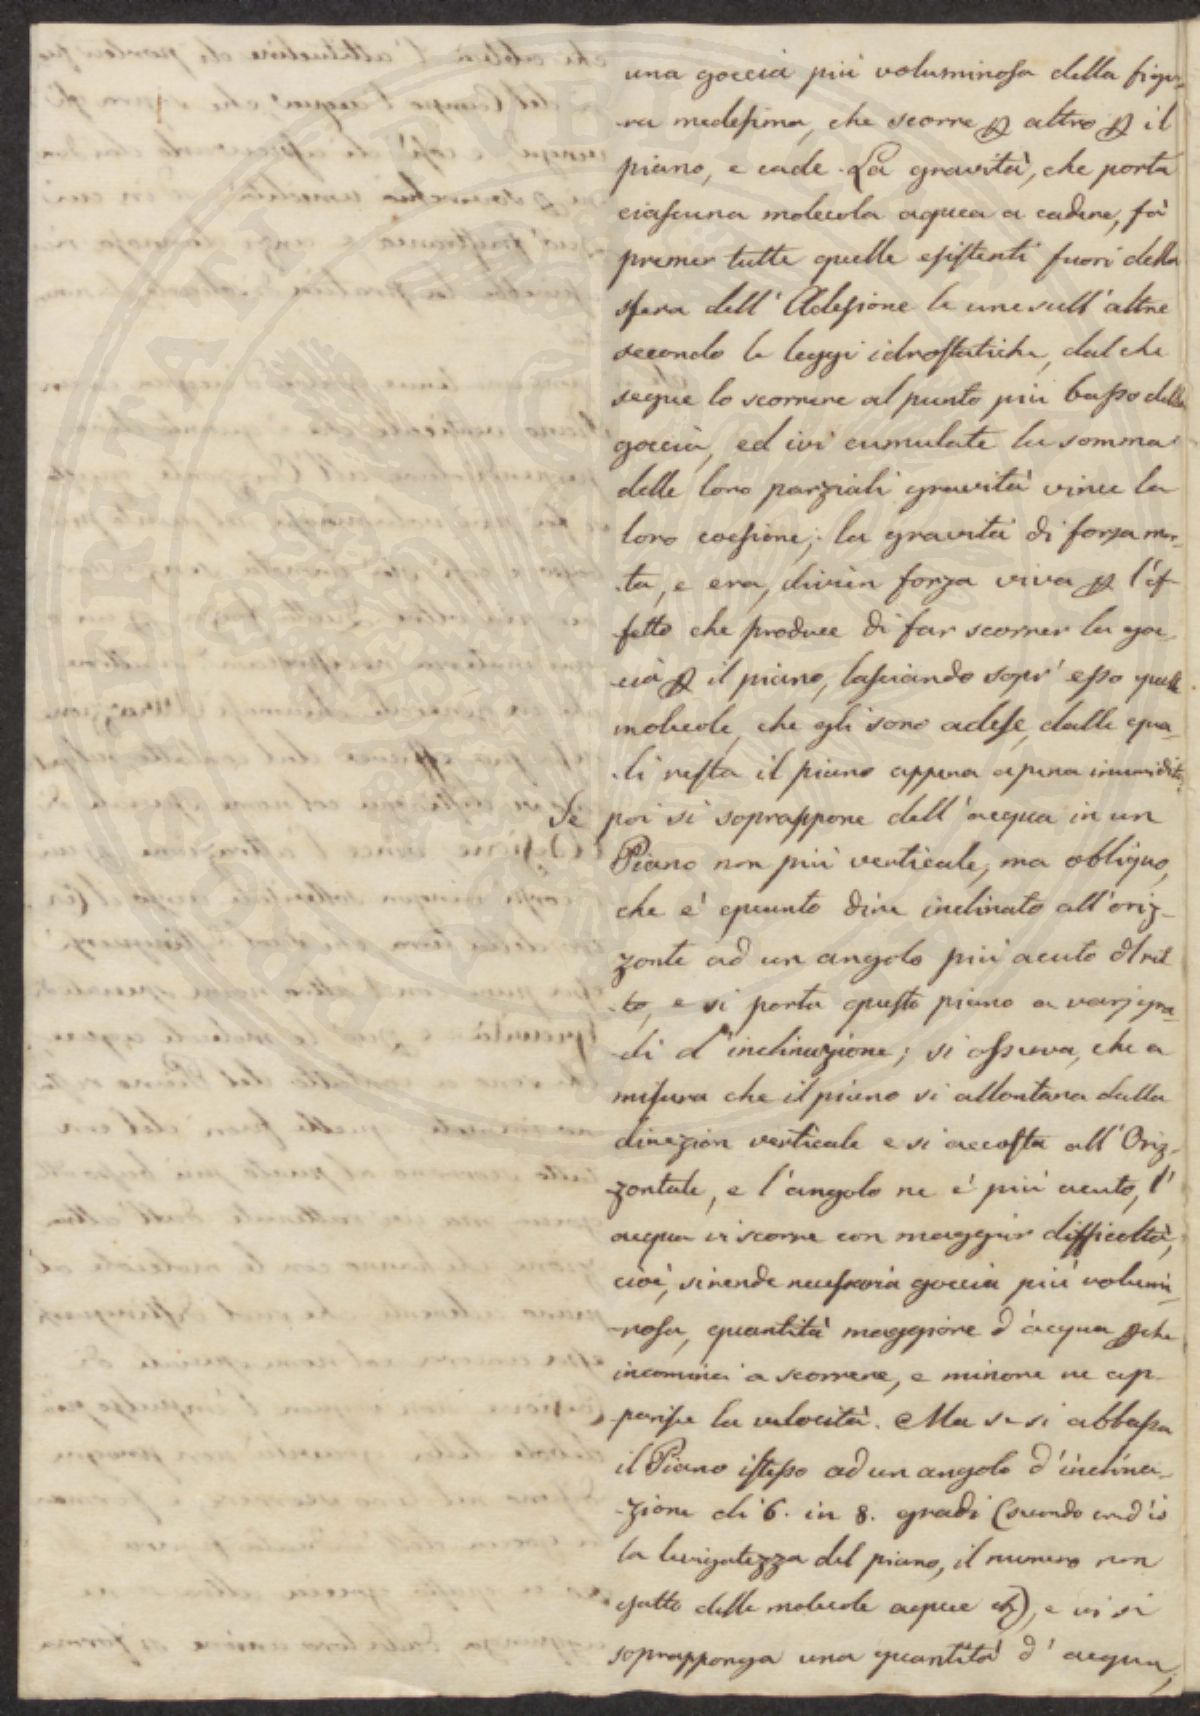 una goccia più voluminosa della figu-
-ra medesima, che scorre p altro p il
piano, e cade. La gravità, che porta
ciascuna molecola aquea a cadere, fà
premer tutte quelle esistenti fuori della
sfera dell'Adesione le une sull'altre
secondo le leggi idrostatiche, dal che
segue lo scorrere al punto più basso della
goccia, ed ivi cumulate la somma
delle loro parziali gravità vince la
loro coesione; la gravità di forza mor-
-ta, e era, divien forza viva p l'ef-
-fetto che produce di far scorrer la goc-
-cia p il piano, lasciando sopr'esso quelle
molecole, che gli sono adese, dalle qua-
-li resta il piano appena apena inumidito,
Se poi si soprappone dell'acqua in un
Piano non più verticale, ma obliquo,
che e' quanto dire inclinato all'oriz-
zonte ad un angolo più acuto d'ret
-to, e si porta questo piano a varj gra-
-di d'inclinazione; si osserva, che a
misura che il piano si allontana dalla
direzion verticale e si accosta all'Oriz-
zontale, e l'angolo ne è più acuto, l'
acqua vi scorre con maggior difficoltà,
cioè, si rende necessaria goccia più volumi-
-nosa, quantità maggiore d'acqua pche
incominci a scorrere, e minore ne ap-
-parisce la velocità. Ma se si abbassa
il Piano istesso ad un angolo d'inclina-
-zione di 6. in 8. gradi (secondo
la levigatezza del piano, il numero non
esatto delle molecole aquee &c), e vi si
soprapponga una quantità d'acqua,